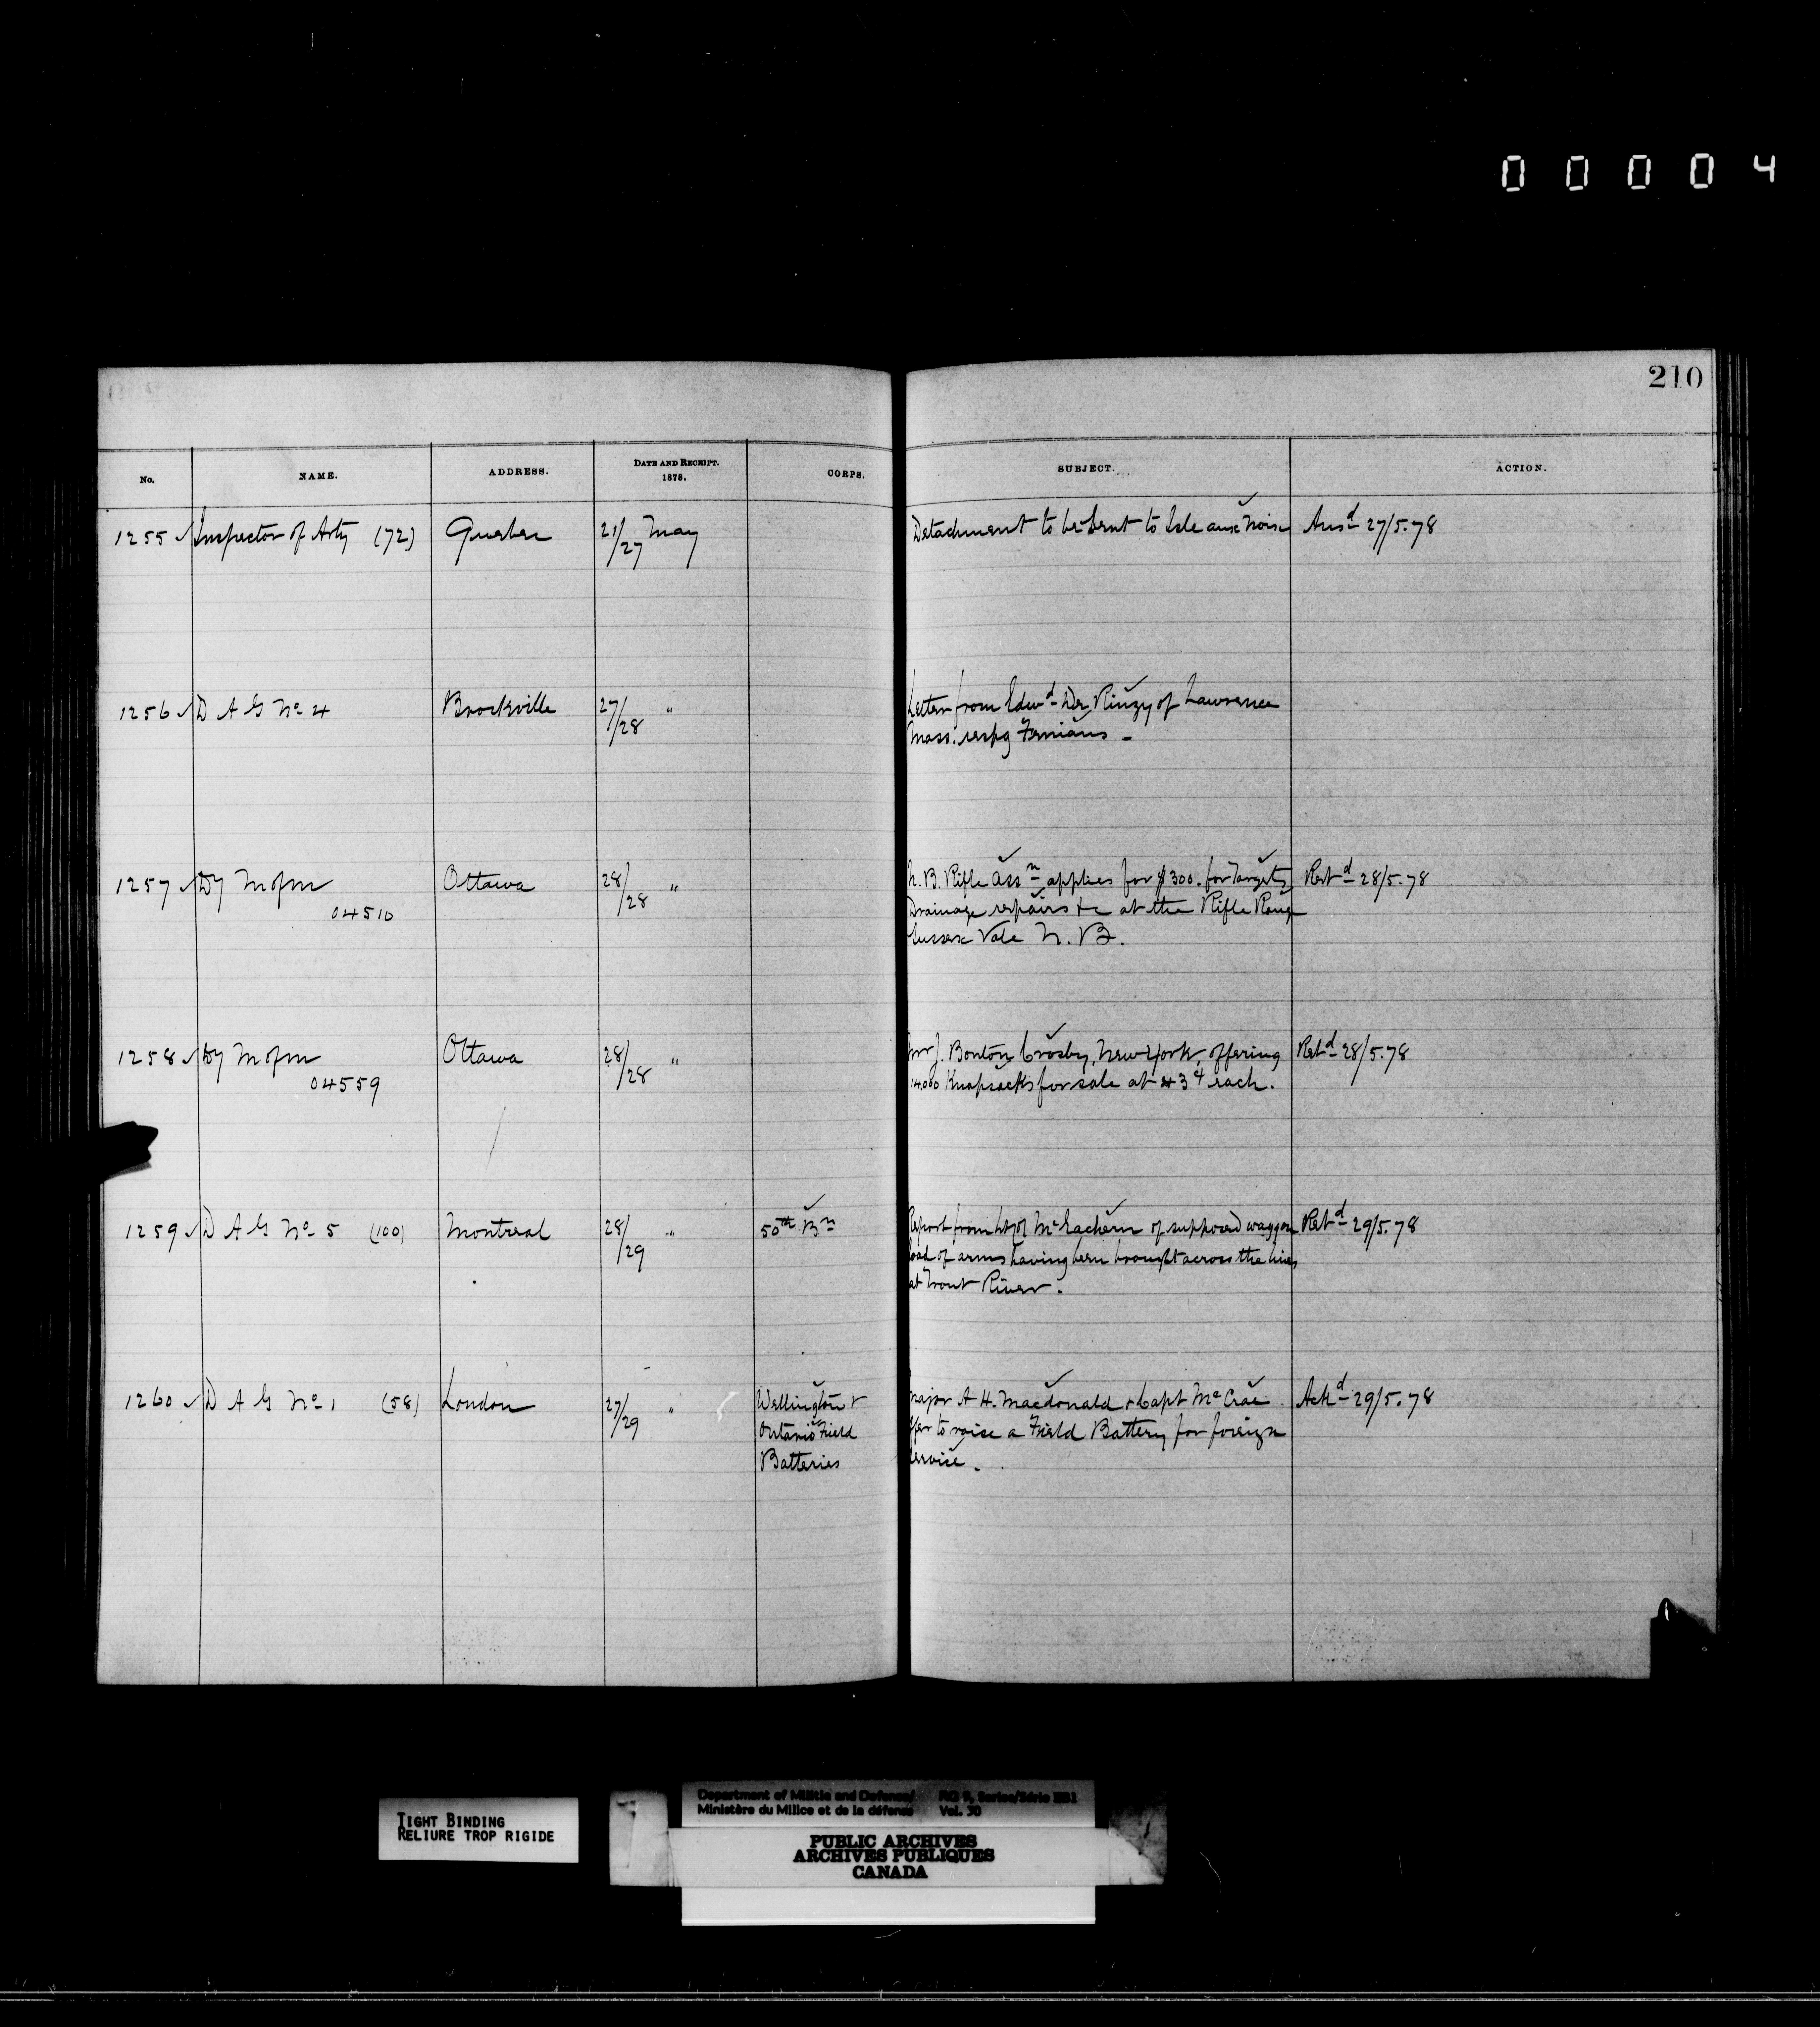 00004
210
No. NAME. ADDRESS. DATE AND RECEIPT. 1878. CORPS. SUBJECT. ACTION.
1255 ✓ Inspector of Arty (72) Quebec 21/27 May Detachment to be sent to Isle aux Noix Ansd 27/5.78
1256 ✓ D A G No 4 Brockville 27/28 " Letter from Edwd De Rinzy of Lawrence
Mass. respg Fenians -
1257 ✓ Dy M of M Ottawa 28/28 " N.B. Rifle Assn applies for $300. for Targets Retd 28/5.78
04510 Drainage repairs &c at the Rifle Range
Sussex Vale N.B.
1258 ✓ Dy M of M Ottawa 28/28 " Mr J. Bonton Crosby, New York, offering Retd 28/5.78
04559 14.000 Knapsacks for sale at each.
1259 ✓ D A G No 5 (100) Montreal 28/29 " 50th Bn Report from McEachern of supposed waggon Retd 29/5.78
load of arms having been brought across the lines
at Trout River.
1260 ✓ D A G No 1 (58) London 27/29 " Wellington & Major A H. Macdonald & Capt McCrae Ackd 29/5.78
Ontario Field offer to raise a Field Battery for foreign
Batteries service.
TIGHT BINDING
RELIURE TROP RIGIDE
Department of Militia and Defence/ RG 9, Series/Série IIB1
Ministère du Milice et de la défense Vol. 30
PUBLIC ARCHIVES
ARCHIVES PUBLIQUES
CANADA